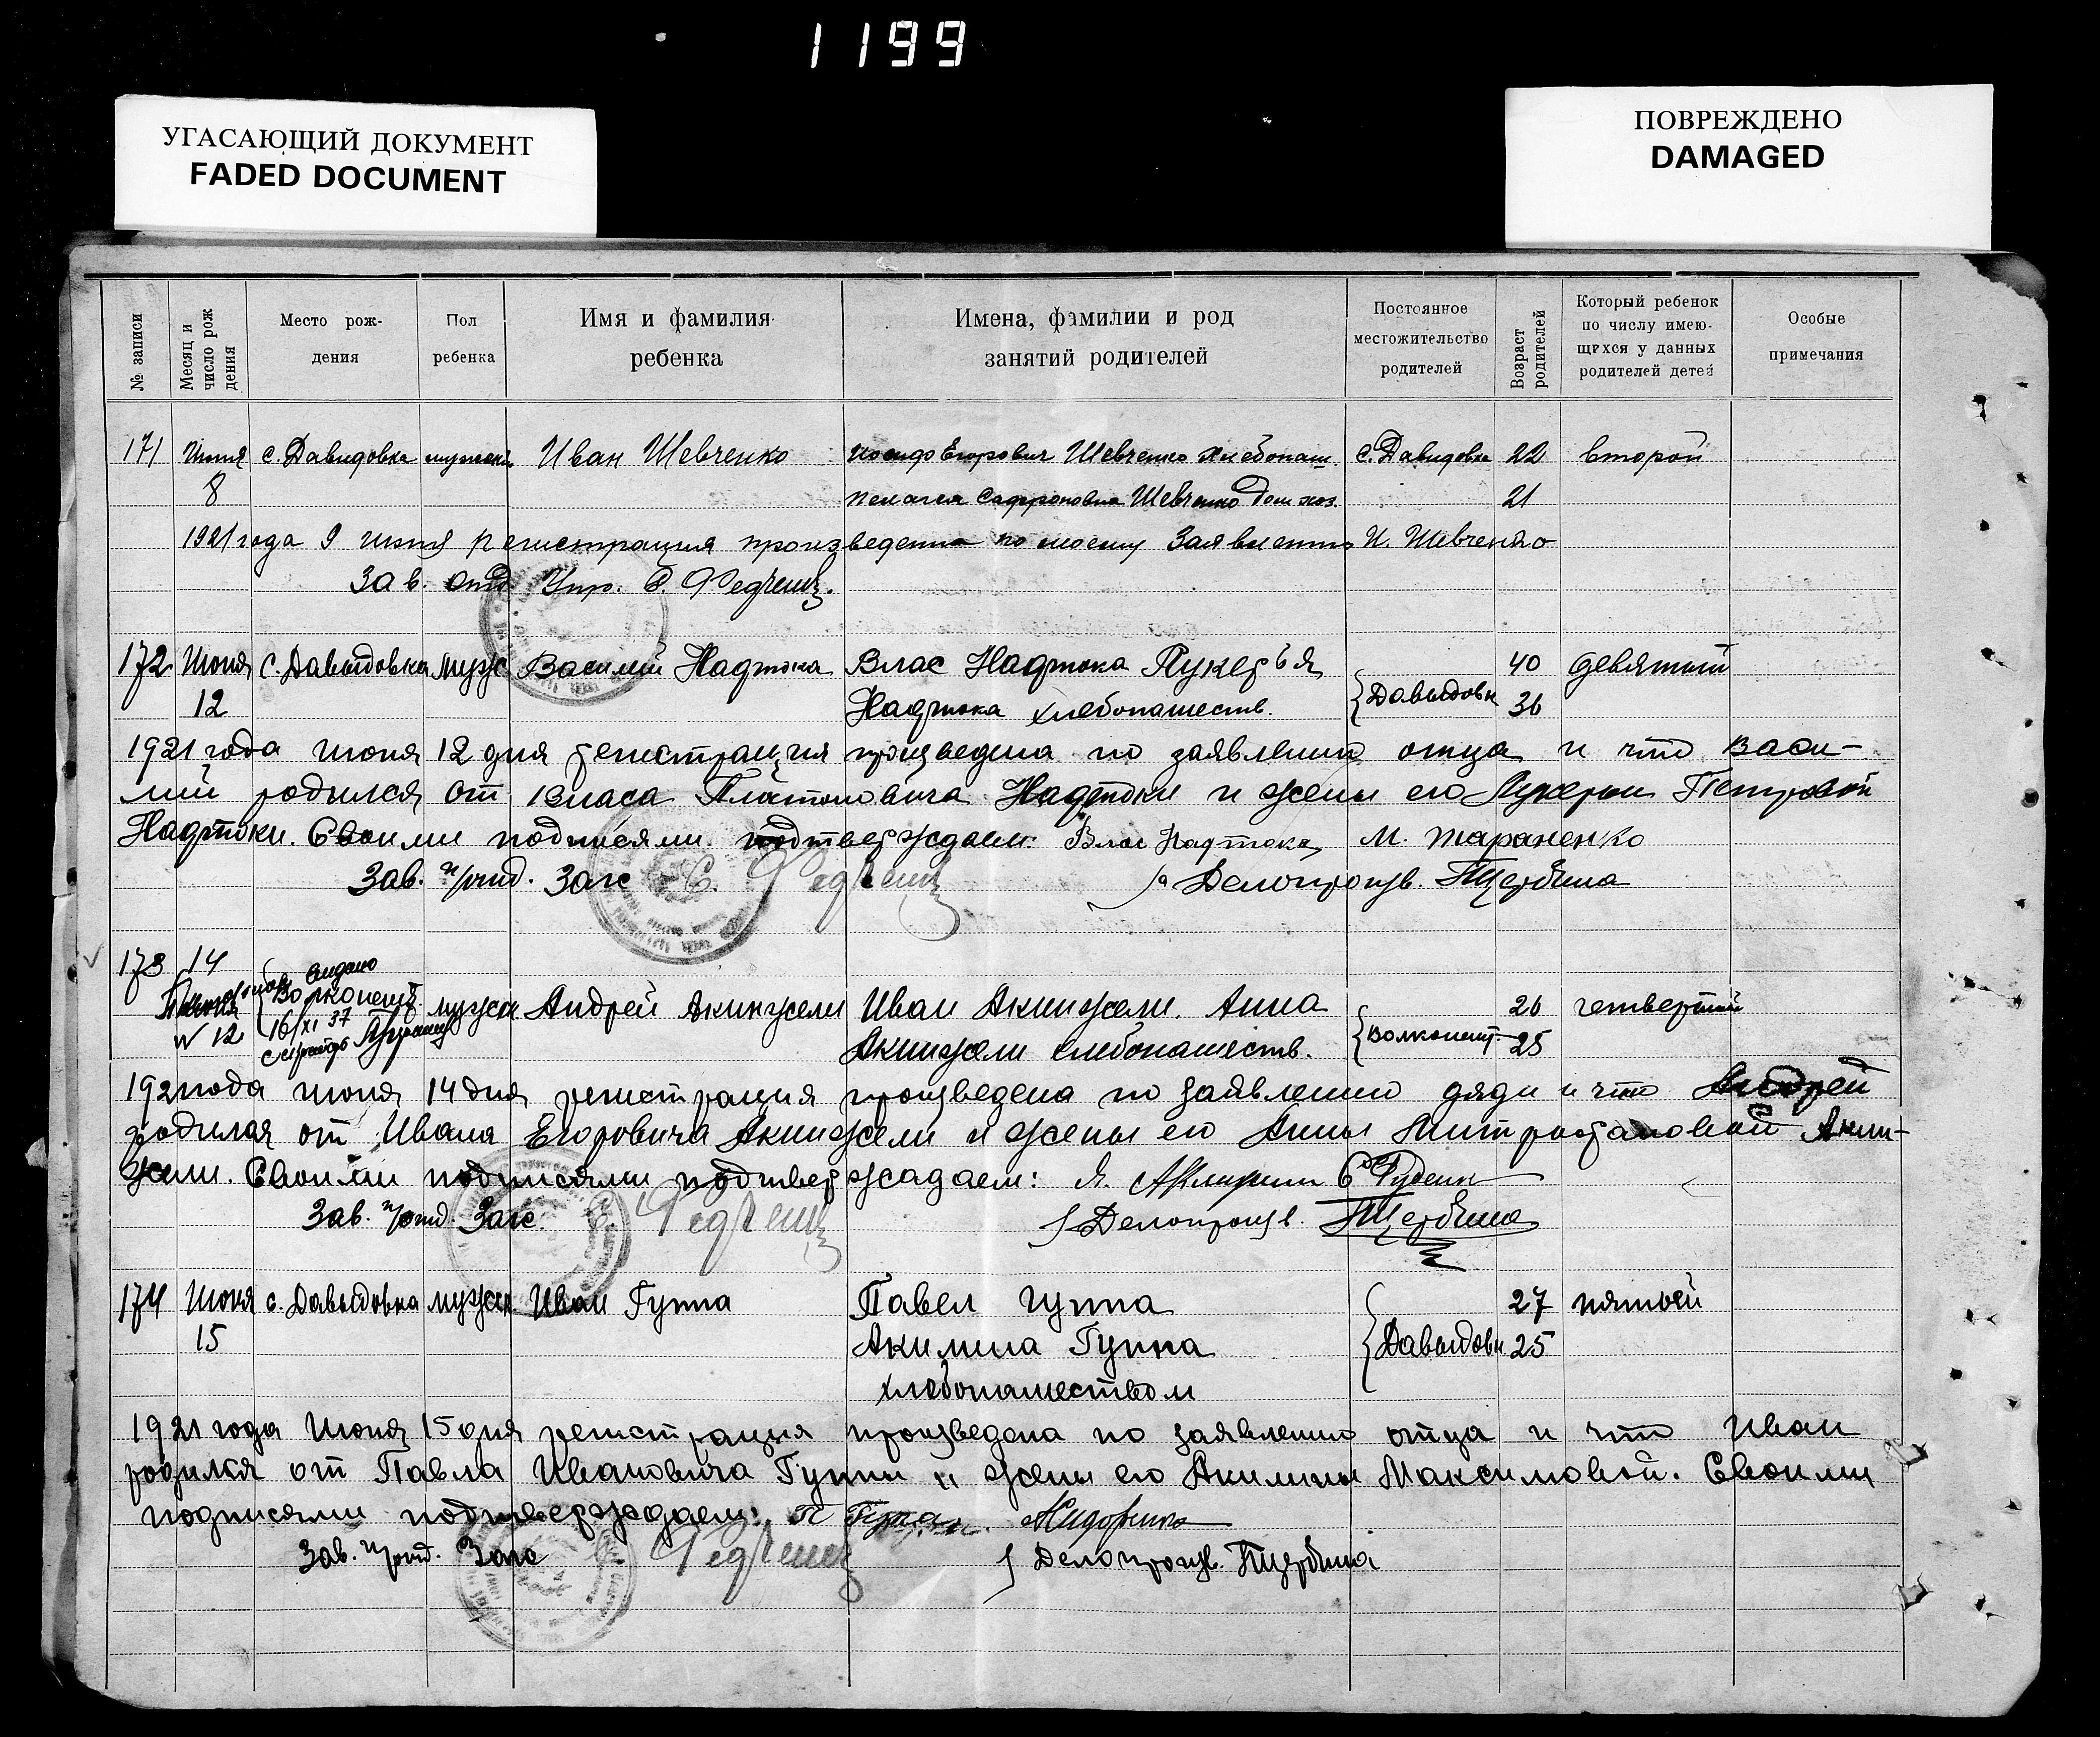 1199
УГАСАЮЩИЙ ДОКУМЕНТ
FADED DOCUMENT
ПОВРЕЖДЕНО
DAMAGED
№ записи
Месяц и число рож дения
Место рож-дения
Пол ребенка
Имя и фамилия ребенка
Имена, фамилии и род занятий родителей
Постоянное местожительство родителей
Возраст родителей
Который ребенок по числу имею-щихся у данных родителей детей
Особые примечания
171 Июня с. Давидовка мужск Иван Шевченко Иосиф Егорович Шевченко хлебопаш. с. Давидовка 22 второй
8 Пелагея Сафроновна Шевченко Дом хоз. 21
1921 года 9 июня регистрация произведенна по моему Заявлению И. Шевченко
Зав. отд Упр.
172 Июня с. Давыдовка мужс Василий Надтока Влас Надтока Лукерья 40 девятый
12 Надтока хлебопашеств. Давыдовк 36
1921 года июня 12 дня регистрация произведена по заявлению отца и что Васи-
лий родился от Власа Платоновича Надтоки и жены его Лукерьи Петровой
Надтоки. Своими подписями подтверждаем: Влас Надтока М. Тараненко
Зав. п/отд. Загс Делопроизв. Щербина
173 14
видано
Июня Волконешт. мужск Андрей Акинжели Иван Акинжели. Анна 26 четвертый
12 16/XI 37
Акинжели хлебопашеств. Волконешт. 25
192 года июня 14 дня регистрация произведена по заявлению дяди и что Андрей
родился от Ивана Егоровича Акинжели и жены его Анны Митрофановой Акин-
жели. Своими подписями подтверждаем: Я.
Зав. п/отд. Загс Делопроизв. Щербина
174 Июня с. Давыдовка мужск. Иван Гуппа Павел Гуппа 27 пятый
15 Акилина Гуппа Давыдовк 25
хлебопашеством
1921 года Июня 15 дня регистрация произведена по заявлению отца и что Иван
родился от Павла Ивановича Гуппы и жены его Акилины Максимовой. Своими
подписями подтверждаем: П
Зав. п/отд. Загс Делопроизв. Щербина